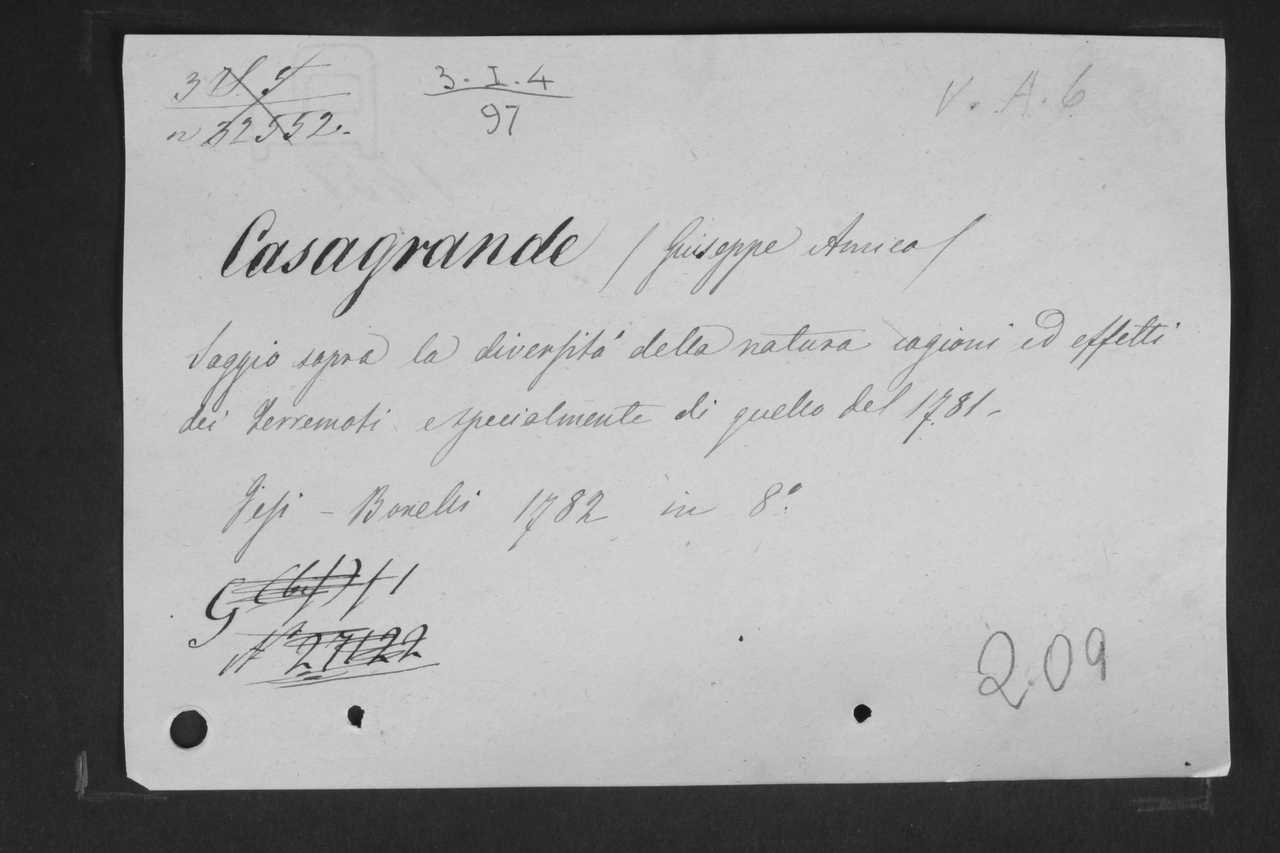 n 32552.
3. I. 4
97
V. A. 6
Casagrande (Giuseppe Amico)
Saggio sopra la diversità della natura cagioni ed effetti
dei terremoti especialmente di quello del 1781-
Jesi - Bonelli 1782 in 8º
G
Nº 27122
209